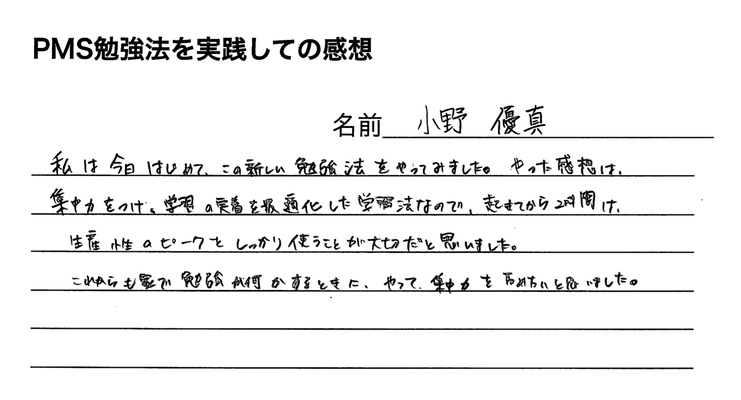 PMS勉強法を実践しての感想
名前 小野 優真
私は今日はじめて、この新しい勉強法をやってみました。やった感想は、
集中力をつけ、学習の定着を最適化した学習法なので、起きてから2時間は、
生産性のピークとしっかり使うことが大切だと思いました。
これからも家で勉強や何かするときに、やって、集中力を高めたいと思いました。